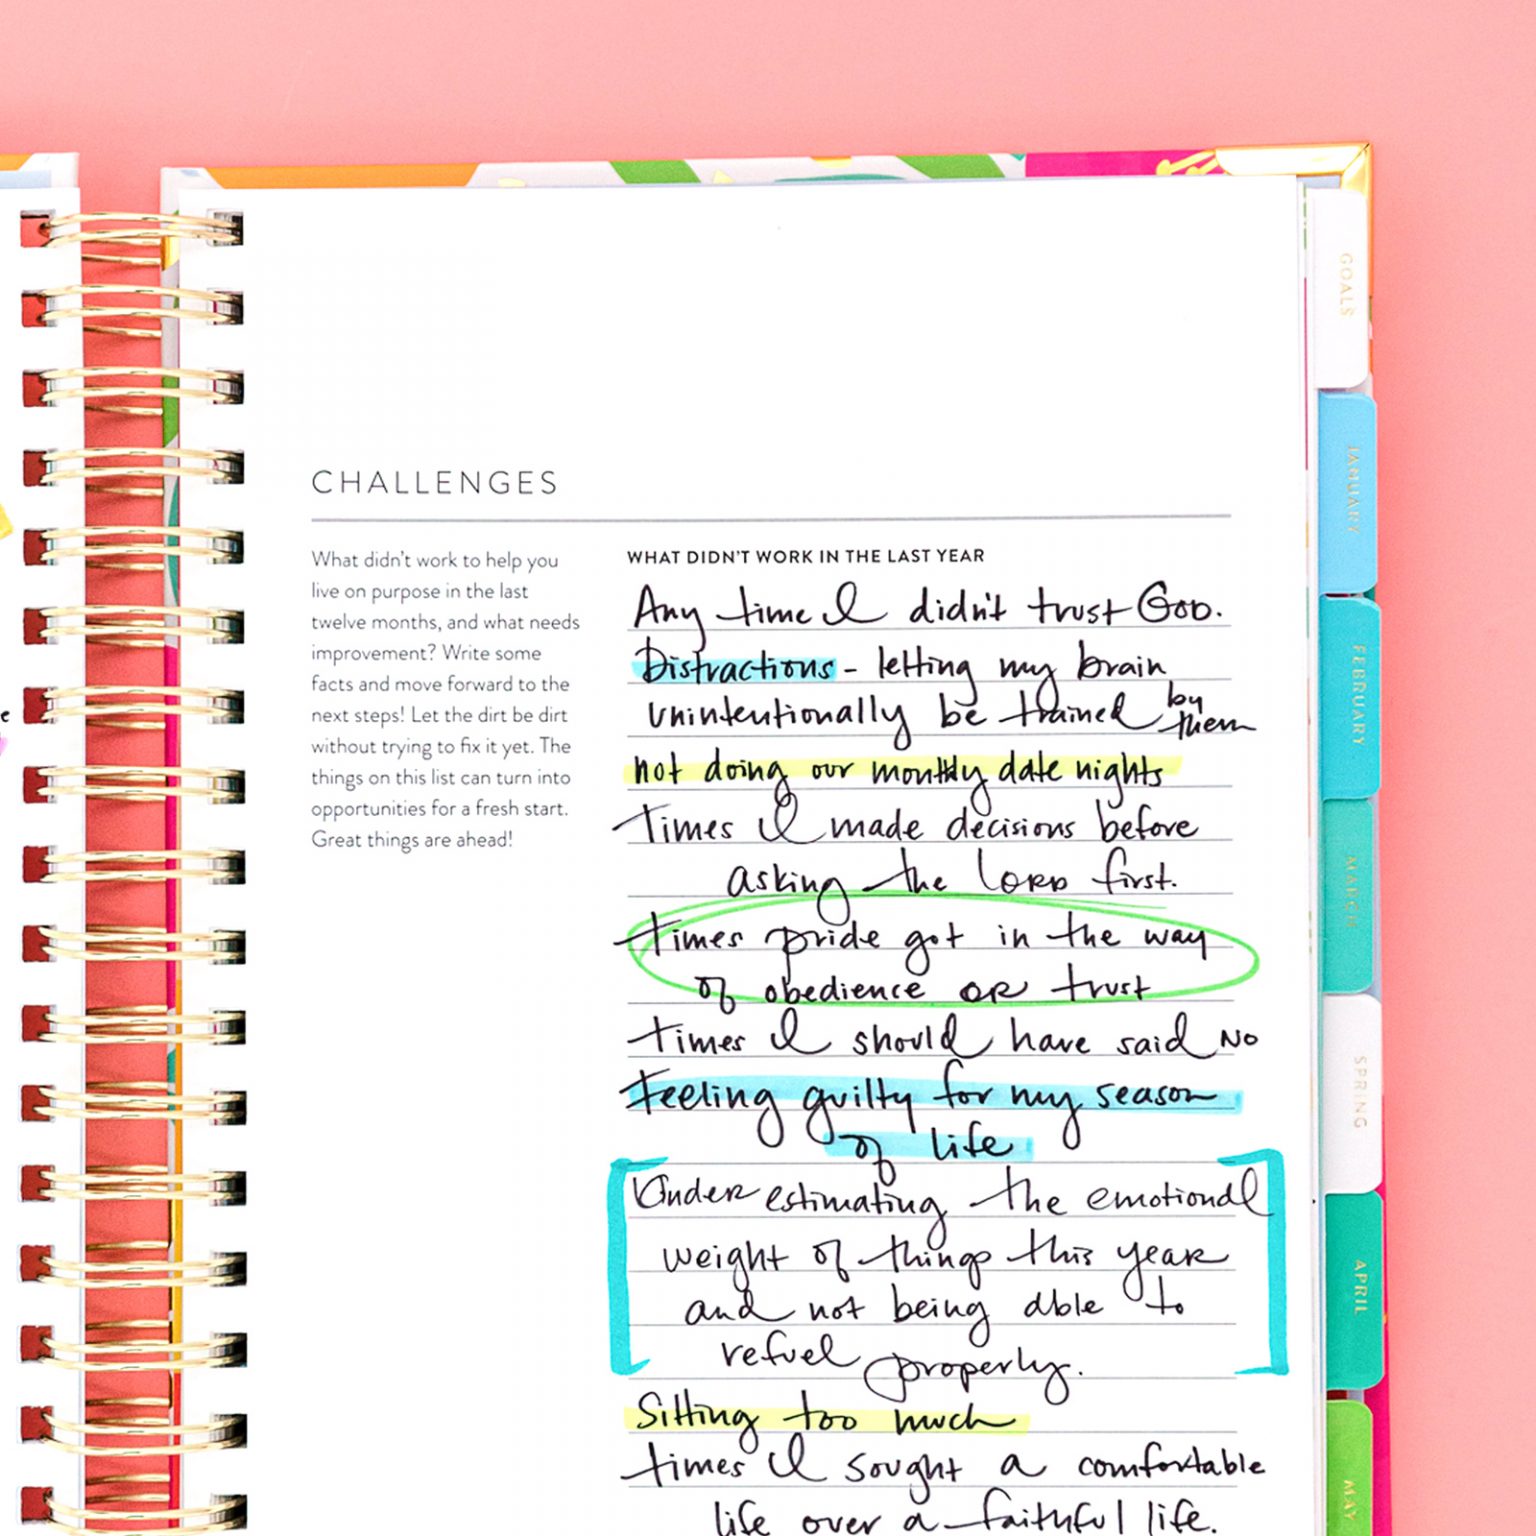 CHALLENGES
What didn't work to help you
live on purpose in the last
twelve months, and what needs
improvement? Write some
facts and move forward to the
next steps! Let the dirt be dirt
without trying to fix it yet. The
things on this list can turn into
opportunities for a fresh start.
Great things are ahead!
WHAT DIDN'T WORK IN THE LAST YEAR
Any time I didn't trust GOD.
Distractions - letting my brain
unintentionally be trained by
them
not doing our monthly date nights
times I made decisions before
asking the LORD first.
times pride got in the way
of obedience OR trust
times I should have said NO
Feeling guilty for my season
of life
Underestimating the emotional
weight of things this year
and not being able to
refuel properly.
Sitting too much
times I sought a comfortable
life over a faithful life.
GOALS
JANUARY
FEBRUARY
MARCH
SPRING
APRIL
MAY